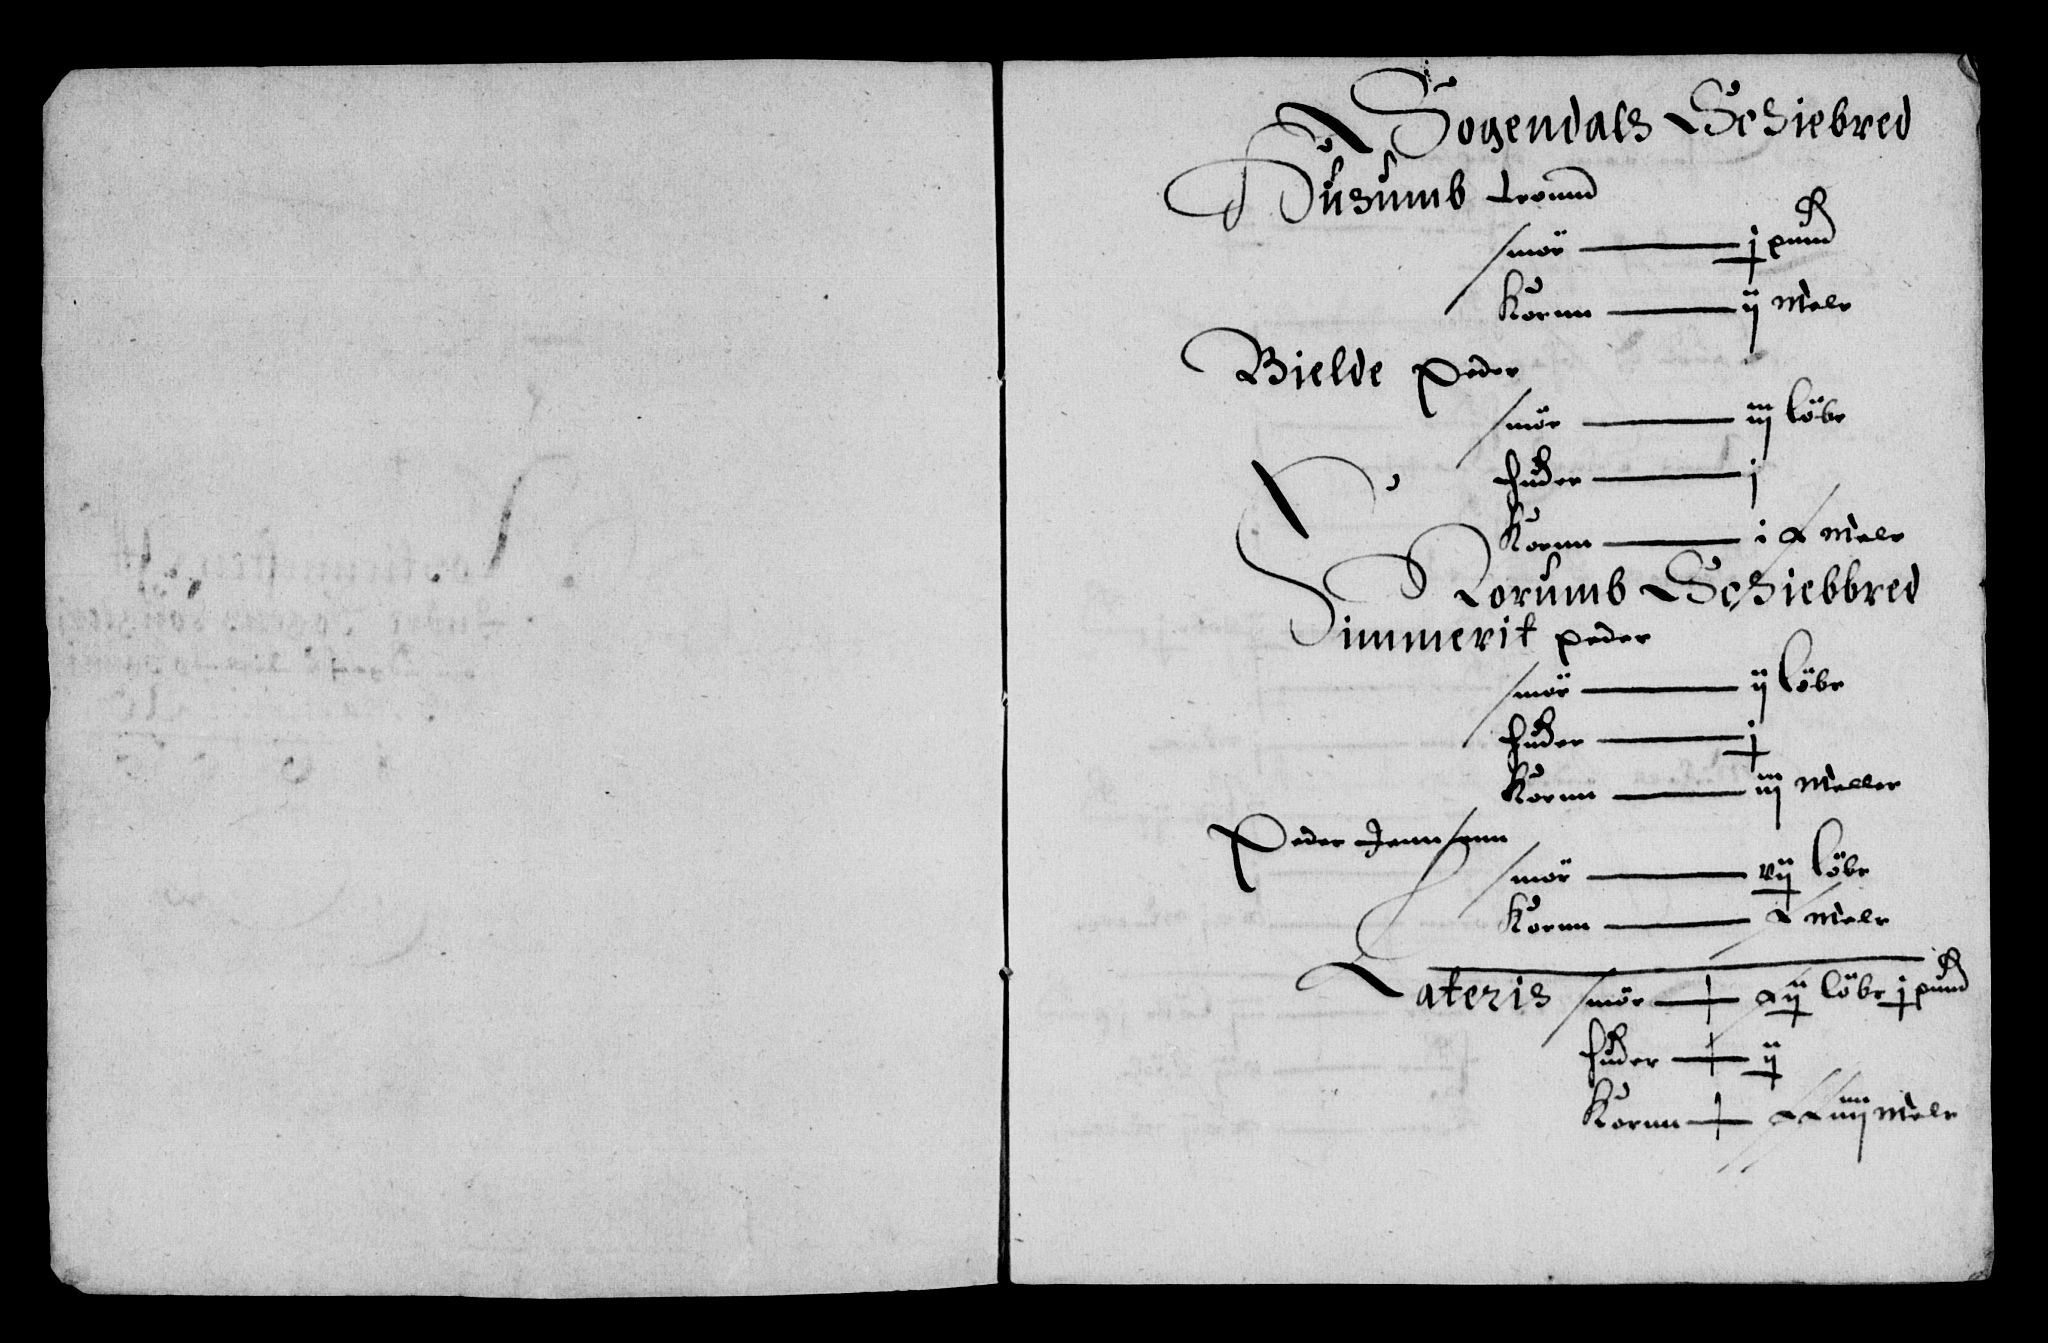 Sogendals Schiebred
Husumb tround
smör — j pund
Kornn — ij Mele
Bielde peder
smör — iij löbe
huder — j
Kornn — i x Mele
Norumb Schiebbred
Simmerit peder
smör — ij löbe
huder — j
Kornn — iij Meller
Peder Jennsenn
smör — vij löbe
Kornn — x Mele
Lateris smör — xij löbe j pund
huder — ij
Kornn — xxiiij Mele